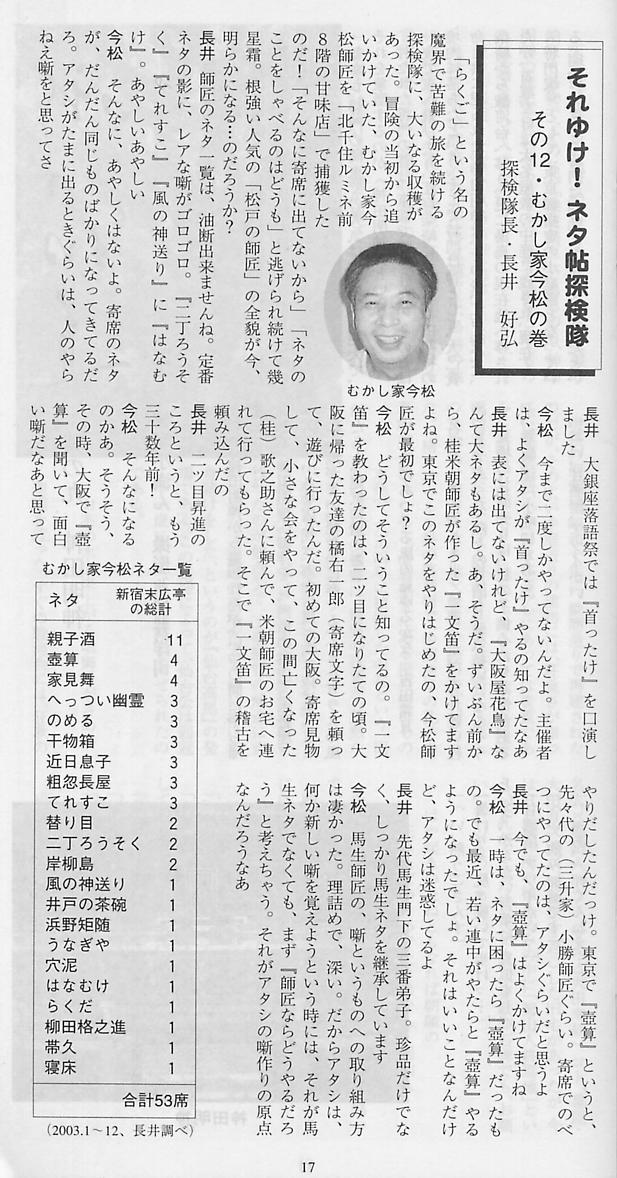 それゆけ！ネタ帖探検隊
その12・むかし家今松の巻
探検隊長・長井　好弘
「らくご」という名の
魔界で苦難の旅を続ける
探検隊に、大いなる収穫が
あった。冒険の当初から追
いかけていた、むかし家今
松師匠を「北千住ルミネ前
８階の甘味店」で捕獲した
のだ！「そんなに寄席に出てないから」「ネタの
ことをしゃべるのはどうも」と逃げられ続けて幾
星霜。根強い人気の「松戸の師匠」の全貌が今、
明らかになる…のだろうか？
長井　師匠のネタ一覧は、油断出来ませんね。定番
ネタの影に、レアな噺がゴロゴロ。『二丁ろうそ
く』『てれすこ』『風の神送り』に『はなむ
け』。あやしいあやしい
今松　そんなに、あやしくはないよ。寄席のネタ
が、だんだん同じものばかりになってきてるだ
ろ。アタシがたまに出るときぐらいは、人のやら
ねえ噺をと思ってさ
むかし家今松
長井　大銀座落語祭では『首ったけ』を口演し
ました
今松　今まで二度しかやってないんだよ。主催者
は、よくアタシが『首ったけ』やるの知ってたなあ
長井　表には出てないけれど、『大阪屋花鳥』な
んて大ネタもあるし。あ、そうだ。ずいぶん前か
ら、桂米朝師匠が作った『一文笛』をかけてます
よね。東京でこのネタをやりはじめたの、今松師
匠が最初でしょ？
今松　どうしてそういうこと知ってるの。『一文
笛』を教わったのは、二ツ目になりたての頃。大
阪に帰った友達の橘右一郎（寄席文字）を頼っ
て、遊びに行ったんだ。初めての大阪。寄席見物
して、小さな会をやって、この間亡くなった
（桂）歌之助さんに頼んで、米朝師匠のお宅へ連
れて行ってもらった。そこで『一文笛』の稽古を
頼み込んだの
長井　二ツ目昇進の
ころというと、もう
三十数年前！
今松　そんなになる
のかあ。そうそう、
その時、大阪で『壺
算』を聞いて、面白
い噺だなあと思って
やりだしたんだっけ。東京で『壺算』というと、
先々代の（三升家）小勝師匠ぐらい。寄席でのべ
つにやってたのは、アタシぐらいだと思うよ
長井　今でも、『壺算』はよくかけてますね
今松　一時は、ネタに困ったら『壺算』だったも
の。でも最近、若い連中がやたらと『壺算』やる
ようになったでしょ。それはいいことなんだけ
ど、アタシは迷惑してるよ
長井　先代馬生門下の三番弟子。珍品だけでな
く、しっかり馬生ネタを継承しています
今松　馬生師匠の、噺というものへの取り組み方
は凄かった。理詰めで、深い。だからアタシは、
何か新しい噺を覚えようという時には、それが馬
生ネタでなくても、まず『師匠ならどうやるだろ
う』と考えちゃう。それがアタシの噺作りの原点
なんだろうなあ
むかし家今松ネタ一覧
ネタ　新宿末広亭の総計
親子酒 11
壺算 4
家見舞 4
へっつい幽霊 3
のめる 3
干物箱 3
近日息子 3
粗忽長屋 3
てれすこ 3
替り目 2
二丁ろうそく 2
岸柳島 2
風の神送り 1
井戸の茶碗 1
浜野矩随 1
うなぎや 1
穴泥 1
はなむけ 1
らくだ 1
柳田格之進 1
帯久 1
寝床 1
合計53席
（2003.1～12、長井調べ）
17